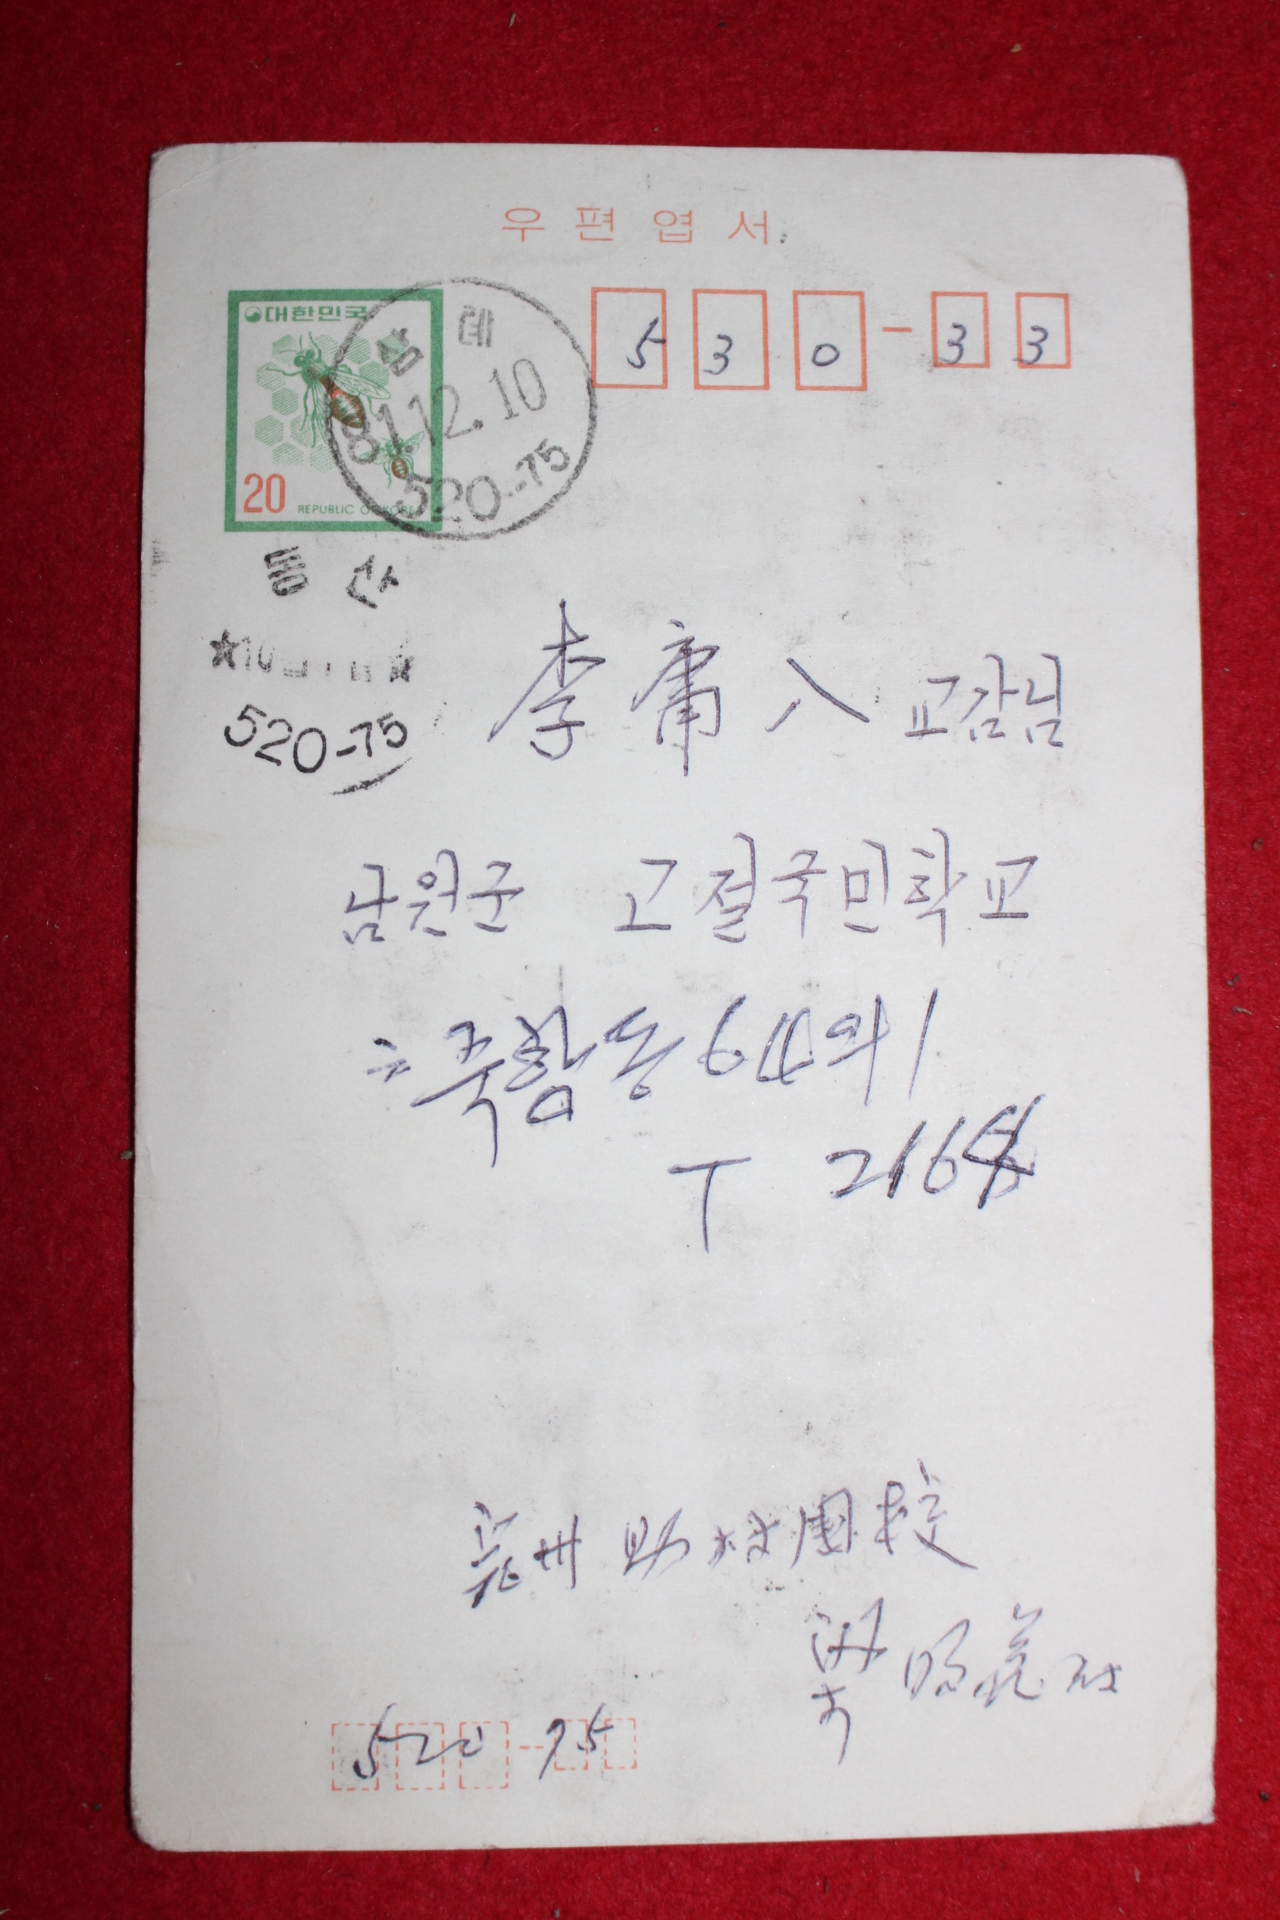 우편엽서
대한민국
20 REPUBLIC OF KOREA
삼례
81.12.10
520-75
530-33
520-75
李庸八 교감님
남원군 고절국민학교
죽항동 64의 1
T 216
助村國校
梁明
520-75